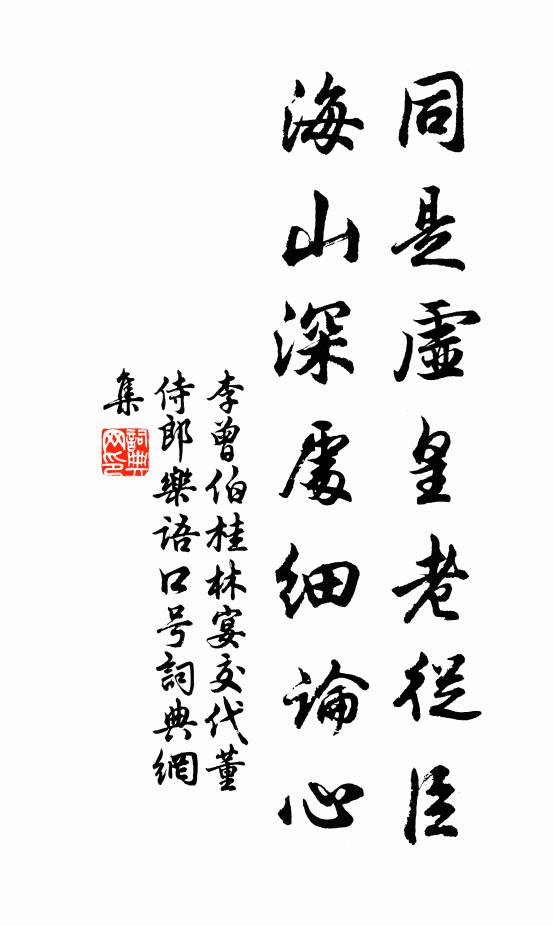 同是虛皇老從臣
海山深處細論心
李曾伯桂林宴交代董
侍郎樂語口号詞典網
集
詞典網印